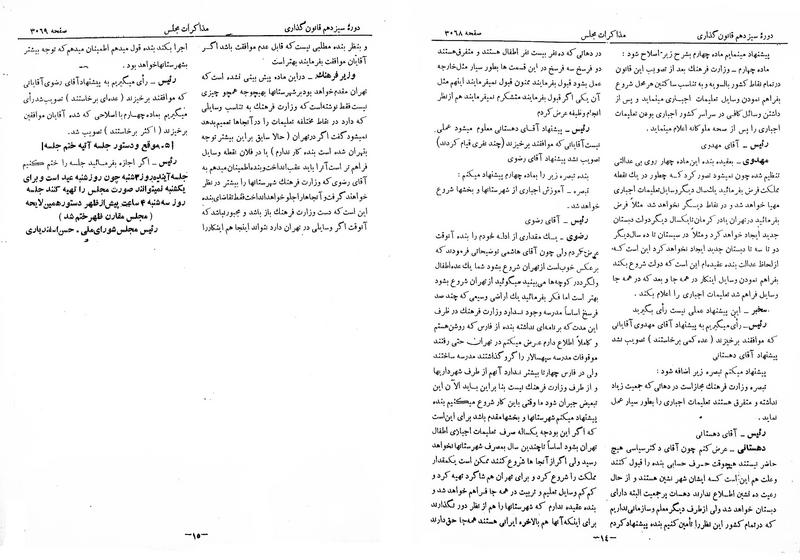 دورهٔ سیزدهم قانون گذاری
مذاکرات مجلس
صفحه ۳۰۶۸
پیشنهاد مینمایم ماده چهارم بشرح زیر اصلاح شود :
ماده چهارم ـ وزارت فرهنگ بعد از تصویب این قانون
در تمام نقاط کشور بالسویه و به تناسب ساکنین هر محل شروع
بفراهم نمودن وسایل تعلیمات اجباری مینماید و پس از
داشتن وسائل کافی در سراسر کشور اجباری بودن تعلیمات
اجباری را پس از صحه ملوکانه اعلام مینماید.
رئیس ـ آقای مهدوی
مهدوی ـ بعقیده بنده این ماده چهار روی بی عدالتی
تنظیم شده چون میشود تصور کرد که چطور در یك نقطه
مملکت فرض بفرمائید یکسال دیگر وسایل تعلیمات اجباری
مهیا خواهد شد و در نقاط دیگر نخواهد شد مثلا فرض
بفرمائید در تهران یا در کرمان تا یکسال دیگر دولت دبستان
جدید ایجاد خواهد کرد و مثلا در سیستان تا ده سال دیگر
دو تا سه تا دبستان جدید ایجاد نخواهد کرد این است که
از لحاظ عدالت بنده عقیده ام این است که دولت شروع بکند
بفراهم نمودن وسایل اینکار در همه جا و بعد که در همه جا
وسایل فراهم شد تعلیمات اجباری را اعلام بکند .
مخبر ـ این پیشنهاد عملی نیست رأی بگیرید
رئیس ـ رأی میگیریم به پیشنهاد آقای مهدوی آقایانی
که موافقند برخیزند ( عده کمی برخاستند ) تصویب نشد
پیشنهاد آقای دهستانی
پیشنهاد میکنم تبصره زیر اضافه شود :
تبصره وزارت فرهنگ مجاز است در دهاتی که جمعیت زیاد
نداشته و متفرق هستند تعلیمات اجباری را بطور سیار عمل
نماید .
رئیس ـ آقای دهستانی
دهستانی ـ عرض کنم چون آقای دکتر سیاسی هیچ
حاضر نیستند هیچوقت حرف حسابی بنده را قبول کنند
وعلت هم این است که ایشان شهر نشین هستند و از حال
رعیت ده نشین اطلاع ندارند دهسات پرجمعیت البته دارای
دبستان خواهد شد ولی از طرف دیگر معلم و سازمانی نداریم
که در تمام کشور این نظر را تأمین کنیم بنده پیشنهاد کردم
در دهاتی که ده نفر بیست نفر اطفال هستند و متفرق هستند
دو فرسخ سه فرسخ در این قسمت ها بطور سیار مثل خارجه
عمل بشود قبول بفرمایند ممنون قبول نمیفرمایند اینهم مثل
آن یکی اگر قبول بفرمایند متشکرم نمیفرمایند هم از نظر
انجام وظیفه عرض کردم
رئیس ـ پیشنهاد آقای دهستانی معلوم میشود عملی
نیست آقایانی که موافقند برخیزند (چند نفری قیام کردند)
تصویب نشد پیشنهاد آقای رضوی
بنده تبصره زیر را بماده چهارم پیشنهاد میکنم :
تبصره ـ آموزش اجباری از شهرستانها و بخشها شروع
خواهد شد .
رئیس ـ آقای رضوی
رضوی ـ یـك مقداری از ادله خودم را بنده آنوقت
عرض کردم ولی چون آقای هاشمی توضیحاتی فرمودند که
برعکس خوب است از تهران شروع بشود شما یك عده اطفال
ولگرد در کوچه ها می بینید میگوئید از تهران شروع بشود
بهتر است اما فکر بفرمائید یك اراضی وسیعی که چند صد
فرسخ اساساً مدرسه وجود ندارد وزارت فرهنك در ظرف
این مدت که برنامه ای نداشته بنده از فارس که روشن هستم
و کاملا اطلاع دارم عرض میکنم در تهران حتی رفتند
موقوفات مدرسه سپهسالار را گرو گذاشتند مدرسه ساختند
ولی در فارس چهارتا بیشتر ندارد آنهم از طرف شهرداریها
و از طرف وزارت فرهنك نیست بنا براین باید الآن این
تبعیض جبران شود ما وقتی باین کار شروع میکنیم بنده
پیشنهاد میکنم شهرستانها و بخشها مقدم باشد برای این است
که اگر این بودجه یکساله صرف تعلیمات اجباری اطفال
تهران بشود اساساً تا چندین سال بمصرف شهرستانها نخواهد
رسید ولی اگر از آنجا ها شروع کنند ممکن است یکمقدار
مملکت را شروع کرد و برای تهران هم شاگرد تهیه کرد و
کم کم وسایل تعلیم و تربیت در همه جا فراهم خواهد شد و
بنده عقیده ندارم که شهرستانها را هم از نظر دور نگذارند
برای اینکه آنها هم بالاخره ایرانی هستند همه جا حق دارند
ـ۱٤ـ
دورهٔ سیزدهم قانون گذاری
مذاکرات مجلس
صفحه ۳۰۶۹
و بنظر بنده مطلبی نیست که قابل عدم موافقت باشد اگر
آقایان موافقت بفرمایند بهتر است
وزیر فرهنگ ـ در این ماده پیش بینی نشده است که
تهران مقدم خواهد بود بر شهرستانها بهیچوجه همچو چیزی
نیست فقط نوشته است که وزارت فرهنك به تناسب وسایلی
که دارد در نقاط مختلفه تعلیمات را در آنجاها تعمیم بدهد
نمیشود گفت اگر در تهران (حالا سابق بر این بیشتر توجه
بتهران شده است بنده کار ندارم) یا در فلان نقطه وسایل
فراهم تر است آنرا باید عقب انداخت و بنده اطمینان میدهم به
آقای رضوی که وزارت فرهنك شهرستانها را بیشتر در نظر
خواهد گرفت و آنجاها را جلو خواهد انداخت فقط تقاضای بنده
این است که دست وزارت فرهنك باز باشد و مجبور نباشد که
آنوقت اگر وسایلی در تهران دارد نتواند اینجا هم اینکار را
اجرا بکند بنده قول میدهم اطمینان میدهم که توجه بیشتر
بشهرستانها خواهد بود .
رئیس ـ رأی میگیریم به پیشنهاد آقای رضوی آقایانی
که موافقند برخیزند ( عده ای برخاستند ) تصویب نشد رأی
میگیریم بماده چهارم با اصلاحی که شده آقایان موافقین
برخیزند ( اکثر برخاستند ) تصویب شد .
[۵ ـ موقع و دستور جلسه آتیه ختم جلسه]
رئیس ـ اگر اجازه بفرمائید جلسه را ختم میکنیم
جلسه آینده روز ۳ شنبه چون روز شنبه عید است و برای
یکشنبه نمیتوانند صورت مجلس را تهیه کنند جلسه
روز سه شنبه ۴ ساعت پیش از ظهر دستور همین لایحه
( مجلس مقارن ظهر ختم شد )
رئیس مجلس شورای ملی ـ حسن اسفندیاری
ـ۱۵ـ